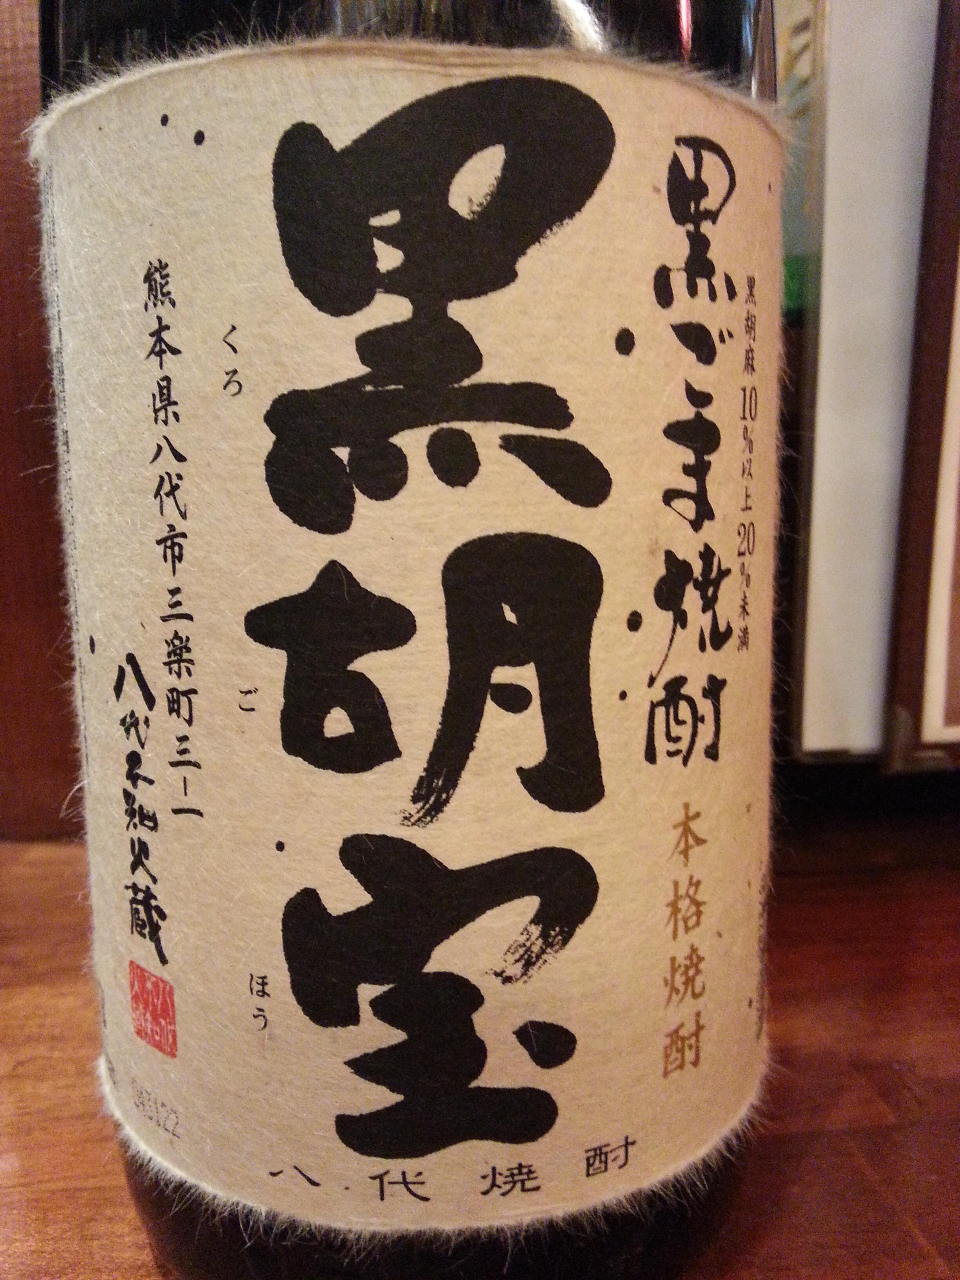 黒胡麻10%以上20%未満
黒ごま焼酎
本格焼酎
黒胡宝
くろ
ご
ほう
熊本県八代市三楽町三ー一
八代不知火蔵
八代焼酎